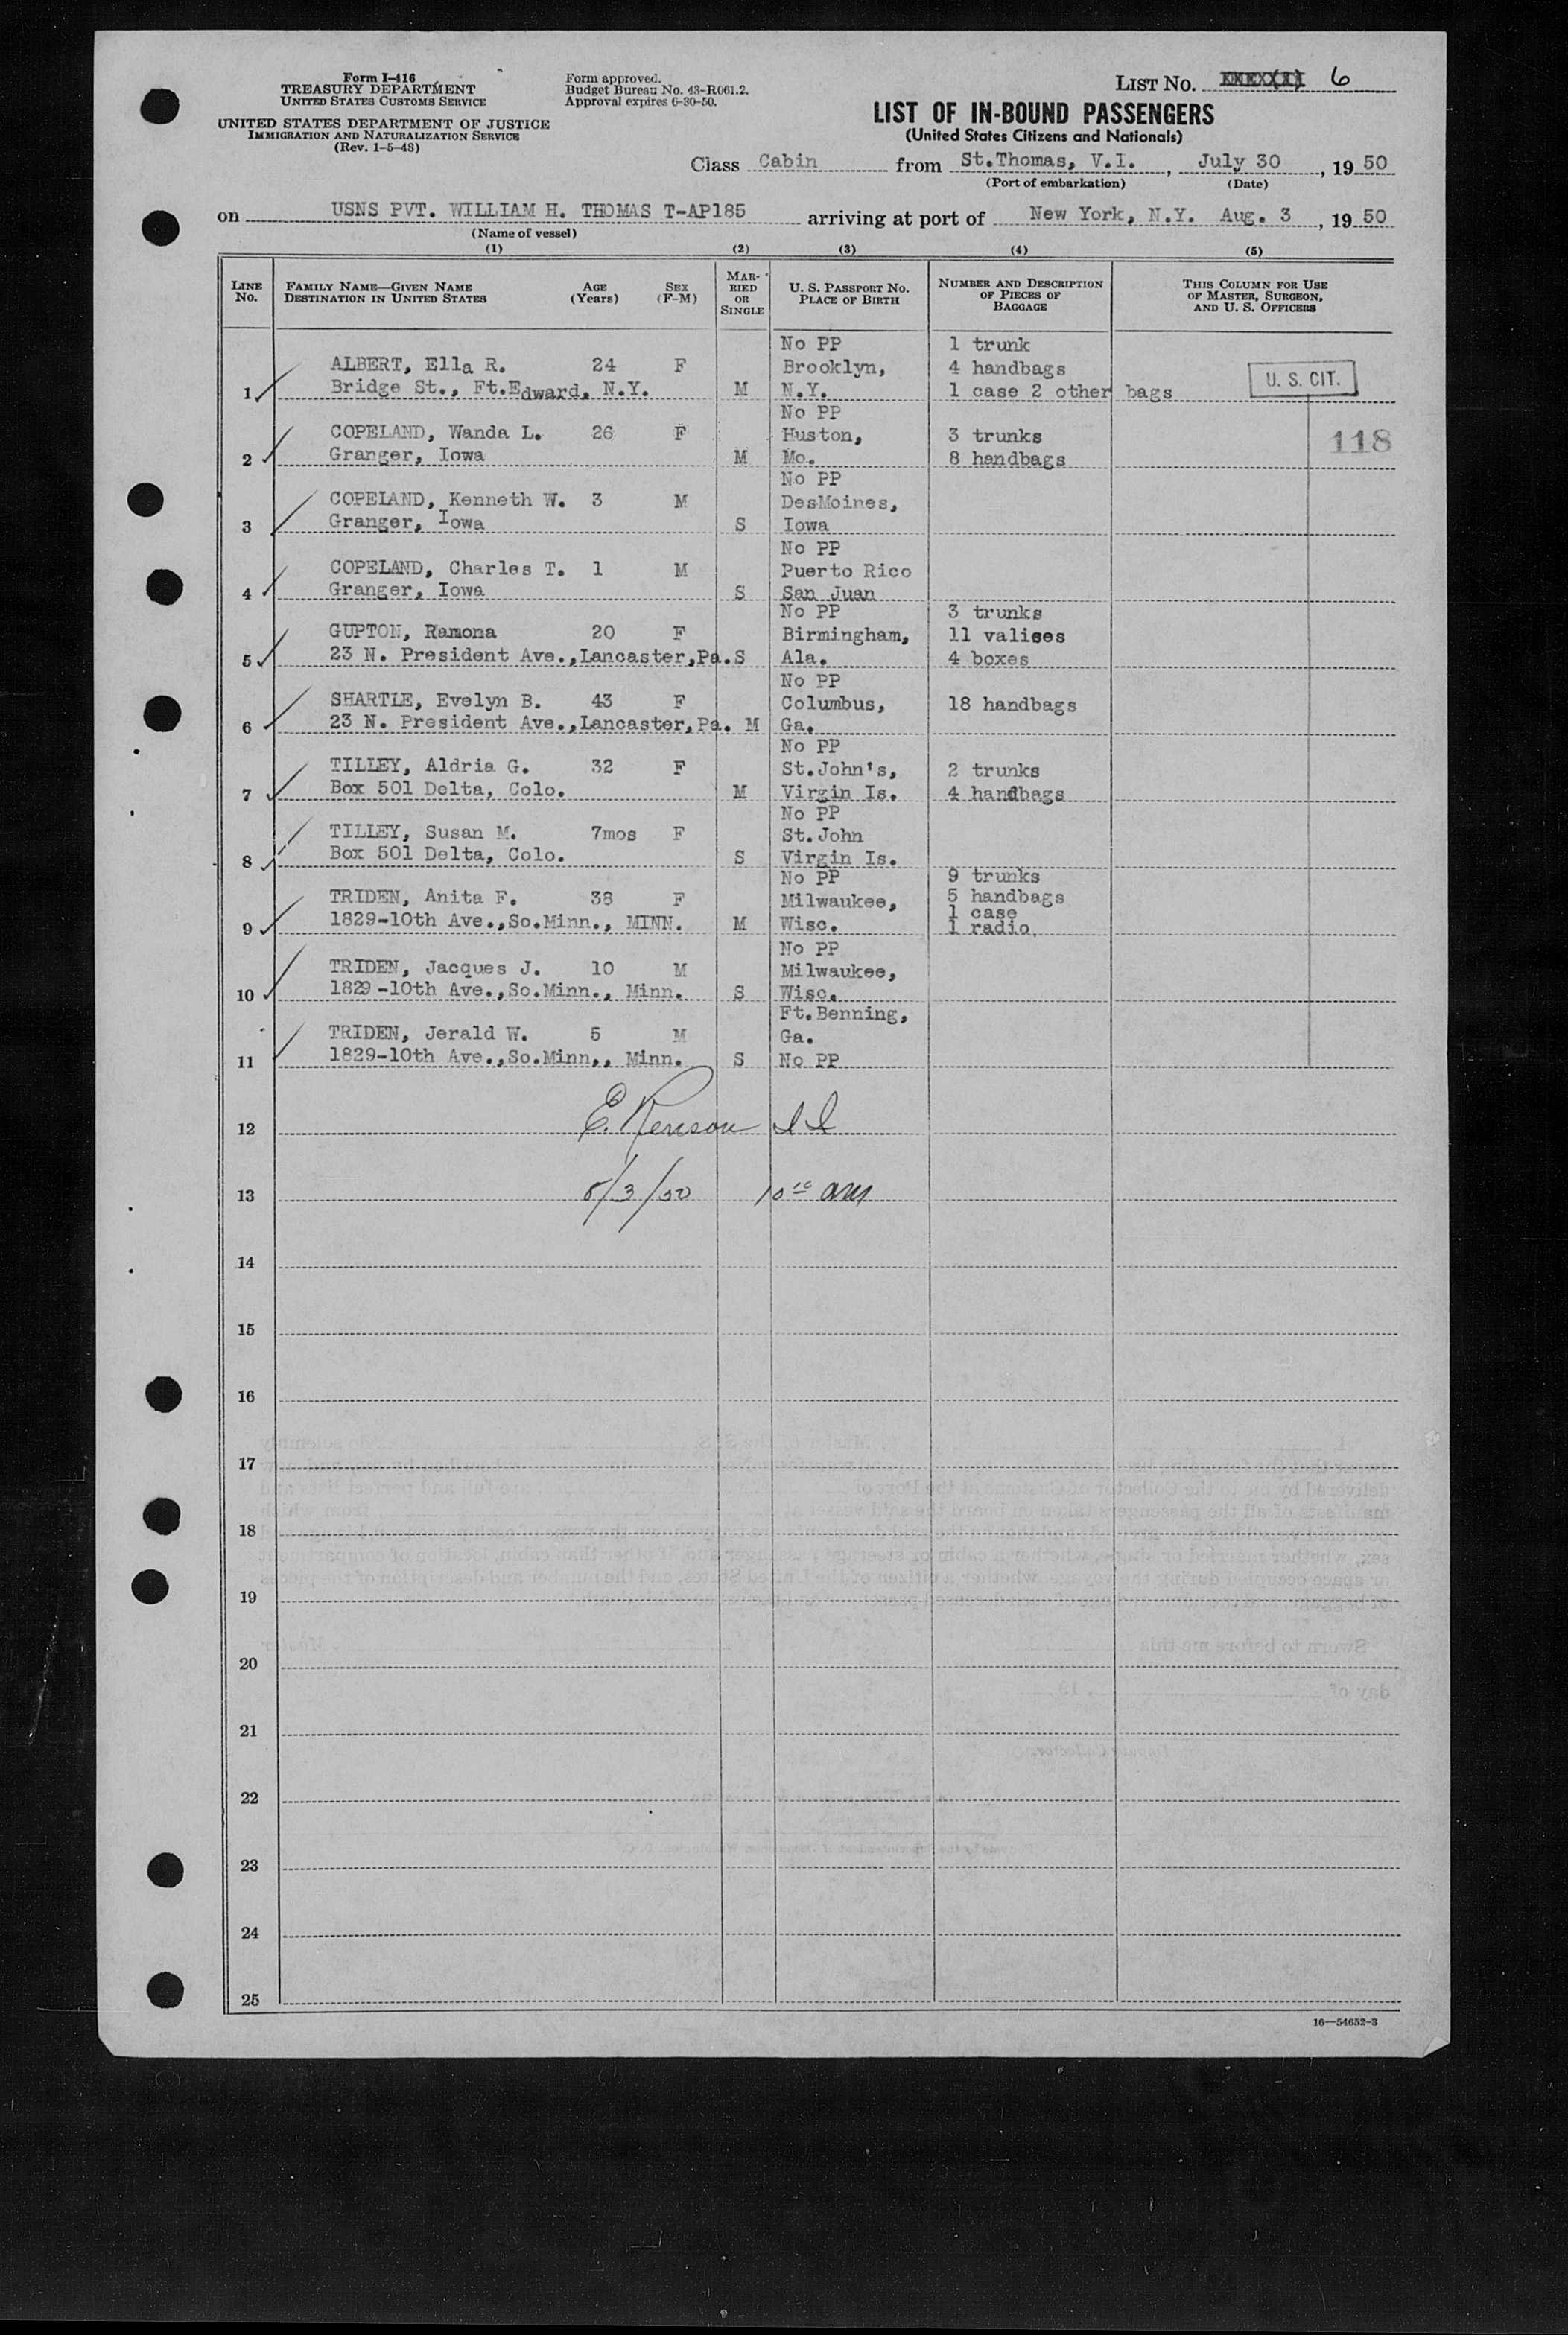 Form I-416
TREASURY DEPARTMENT
UNITED STATES CUSTOMS SERVICE
UNITED STATES DEPARTMENT OF JUSTICE
IMMIGRATION AND NATURALIZATION SERVICE
(Rev. 1-5-48)
Form approved.
Budget Bureau No. 43-R061.2.
Approval expires 6-30-50.
LIST No. 6
LIST OF IN-BOUND PASSENGERS
(United States Citizens and Nationals)
Class Cabin from St.Thomas, V.I., July 30, 19 50
(Port of embarkation) (Date)
on USNS PVT. WILLIAM H. THOMAS T-AP185 arriving at port of New York, N.Y. Aug. 3, 19 50
(Name of vessel)
(1) (2) (3) (4) (5)
LINE No. FAMILY NAME—GIVEN NAME DESTINATION IN UNITED STATES AGE (Years) SEX (F-M) MARRIED OR SINGLE U. S. PASSPORT No. PLACE OF BIRTH NUMBER AND DESCRIPTION OF PIECES OF BAGGAGE THIS COLUMN FOR USE OF MASTER, SURGEON, AND U. S. OFFICERS
No PP 1 trunk
ALBERT, Ella R. 24 F Brooklyn, 4 handbags U. S. CIT.
1 Bridge St., Ft.Edward, N.Y. M N.Y. 1 case 2 other bags
No PP
COPELAND, Wanda L. 26 F Huston, 3 trunks 118
2 Granger, Iowa M Mo. 8 handbags
No PP
COPELAND, Kenneth W. 3 M DesMoines,
3 Granger, Iowa S Iowa
No PP
COPELAND, Charles T. 1 M Puerto Rico
4 Granger, Iowa S San Juan
No PP 3 trunks
GUPTON, Ramona 20 F Birmingham, 11 valises
5 23 N. President Ave.,Lancaster,Pa. S Ala. 4 boxes
No PP
SHARTLE, Evelyn B. 43 F Columbus, 18 handbags
6 23 N. President Ave.,Lancaster,Pa. M Ga.
No PP
TILLEY, Aldria G. 32 F St.John's, 2 trunks
7 Box 501 Delta, Colo. M Virgin Is. 4 handbags
No PP
TILLEY, Susan M. 7mos F St.John
8 Box 501 Delta, Colo. S Virgin Is.
No PP 9 trunks
TRIDEN, Anita F. 38 F Milwaukee, 5 handbags
1 case
9 1829-10th Ave.,So.Minn., MINN. M Wisc. 1 radio
No PP
TRIDEN, Jacques J. 10 M Milwaukee,
10 1829-10th Ave.,So.Minn., Minn. S Wisc.
Ft.Benning,
TRIDEN, Jerald W. 5 M Ga.
11 1829-10th Ave.,So.Minn., Minn. S No PP
12
13 8/3/50 10 am
14
15
16
17
18
19
20
21
22
23
24
25
16—54652-3